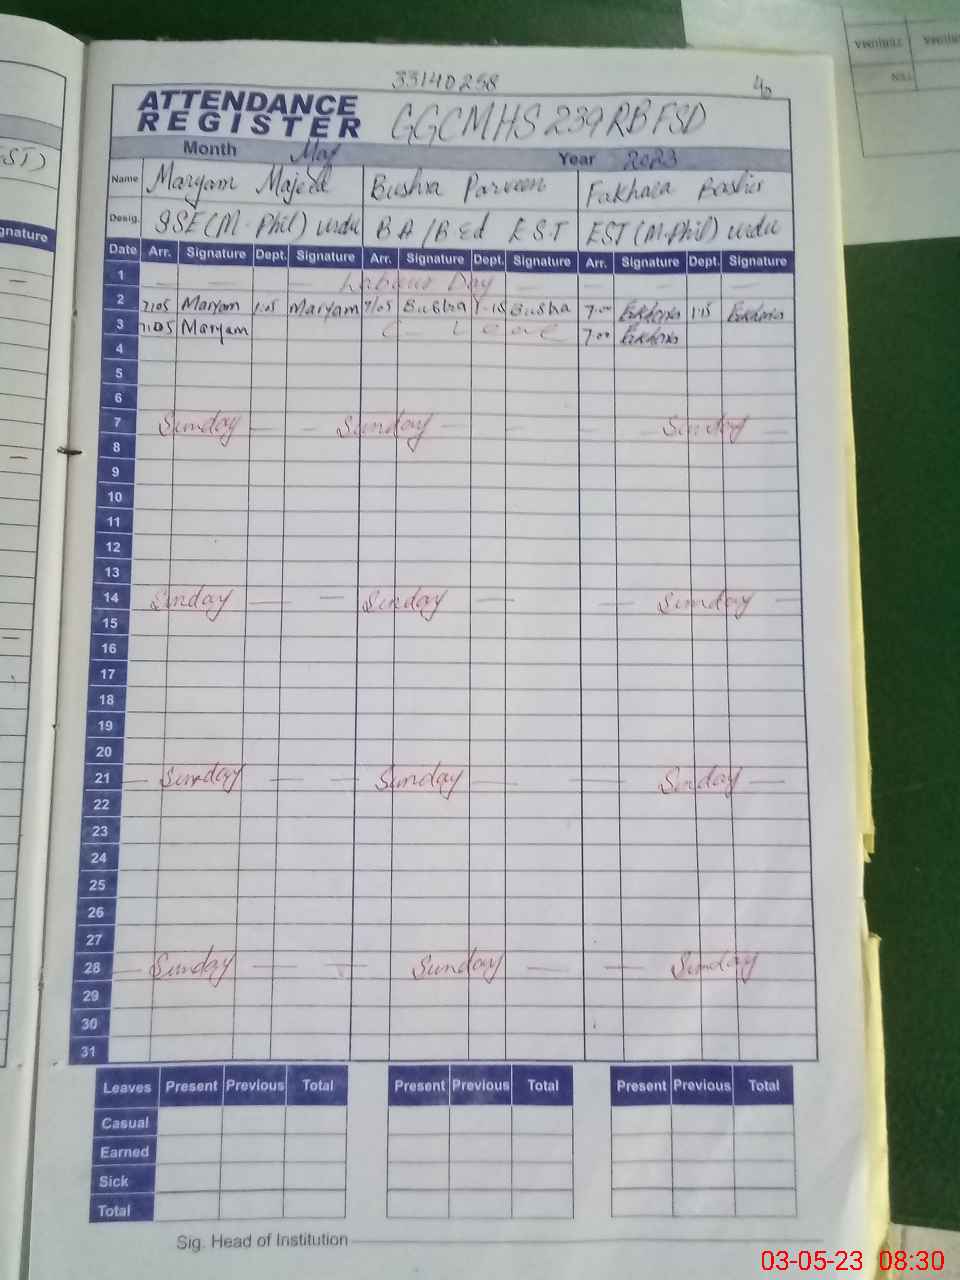 33140258
40
ATTENDANCE
REGISTER GGCMHS 239 RB FSD
Month May Year 2023
Name Maryam Majeed Bushra Parveen Fakhara Bashir
Desig. SSE (M.Phil) urdu BA/B Ed E.S.T EST (M.Phil) urdu
Date Arr. Signature Dept. Signature Arr. Signature Dept. Signature Arr. Signature Dept. Signature
1 Labour Day
2 7:05 Maryam 1:05 Maryam 7:05 Bushra 1:15 Bushra 7:00 1:15
3 7:05 Maryam C- Leave 7:00
4
5
6
7 Sunday Sunday Sunday
8
9
10
11
12
13
14 Sunday Sunday Sunday
15
16
17
18
19
20
21 Sunday Sunday Sunday
22
23
24
25
26
27
28 Sunday Sunday Sunday
29
30
31
Leaves Present Previous Total Present Previous Total Present Previous Total
Casual
Earned
Sick
Total
Sig. Head of Institution
ST)
gnature
03-05-23 08:30